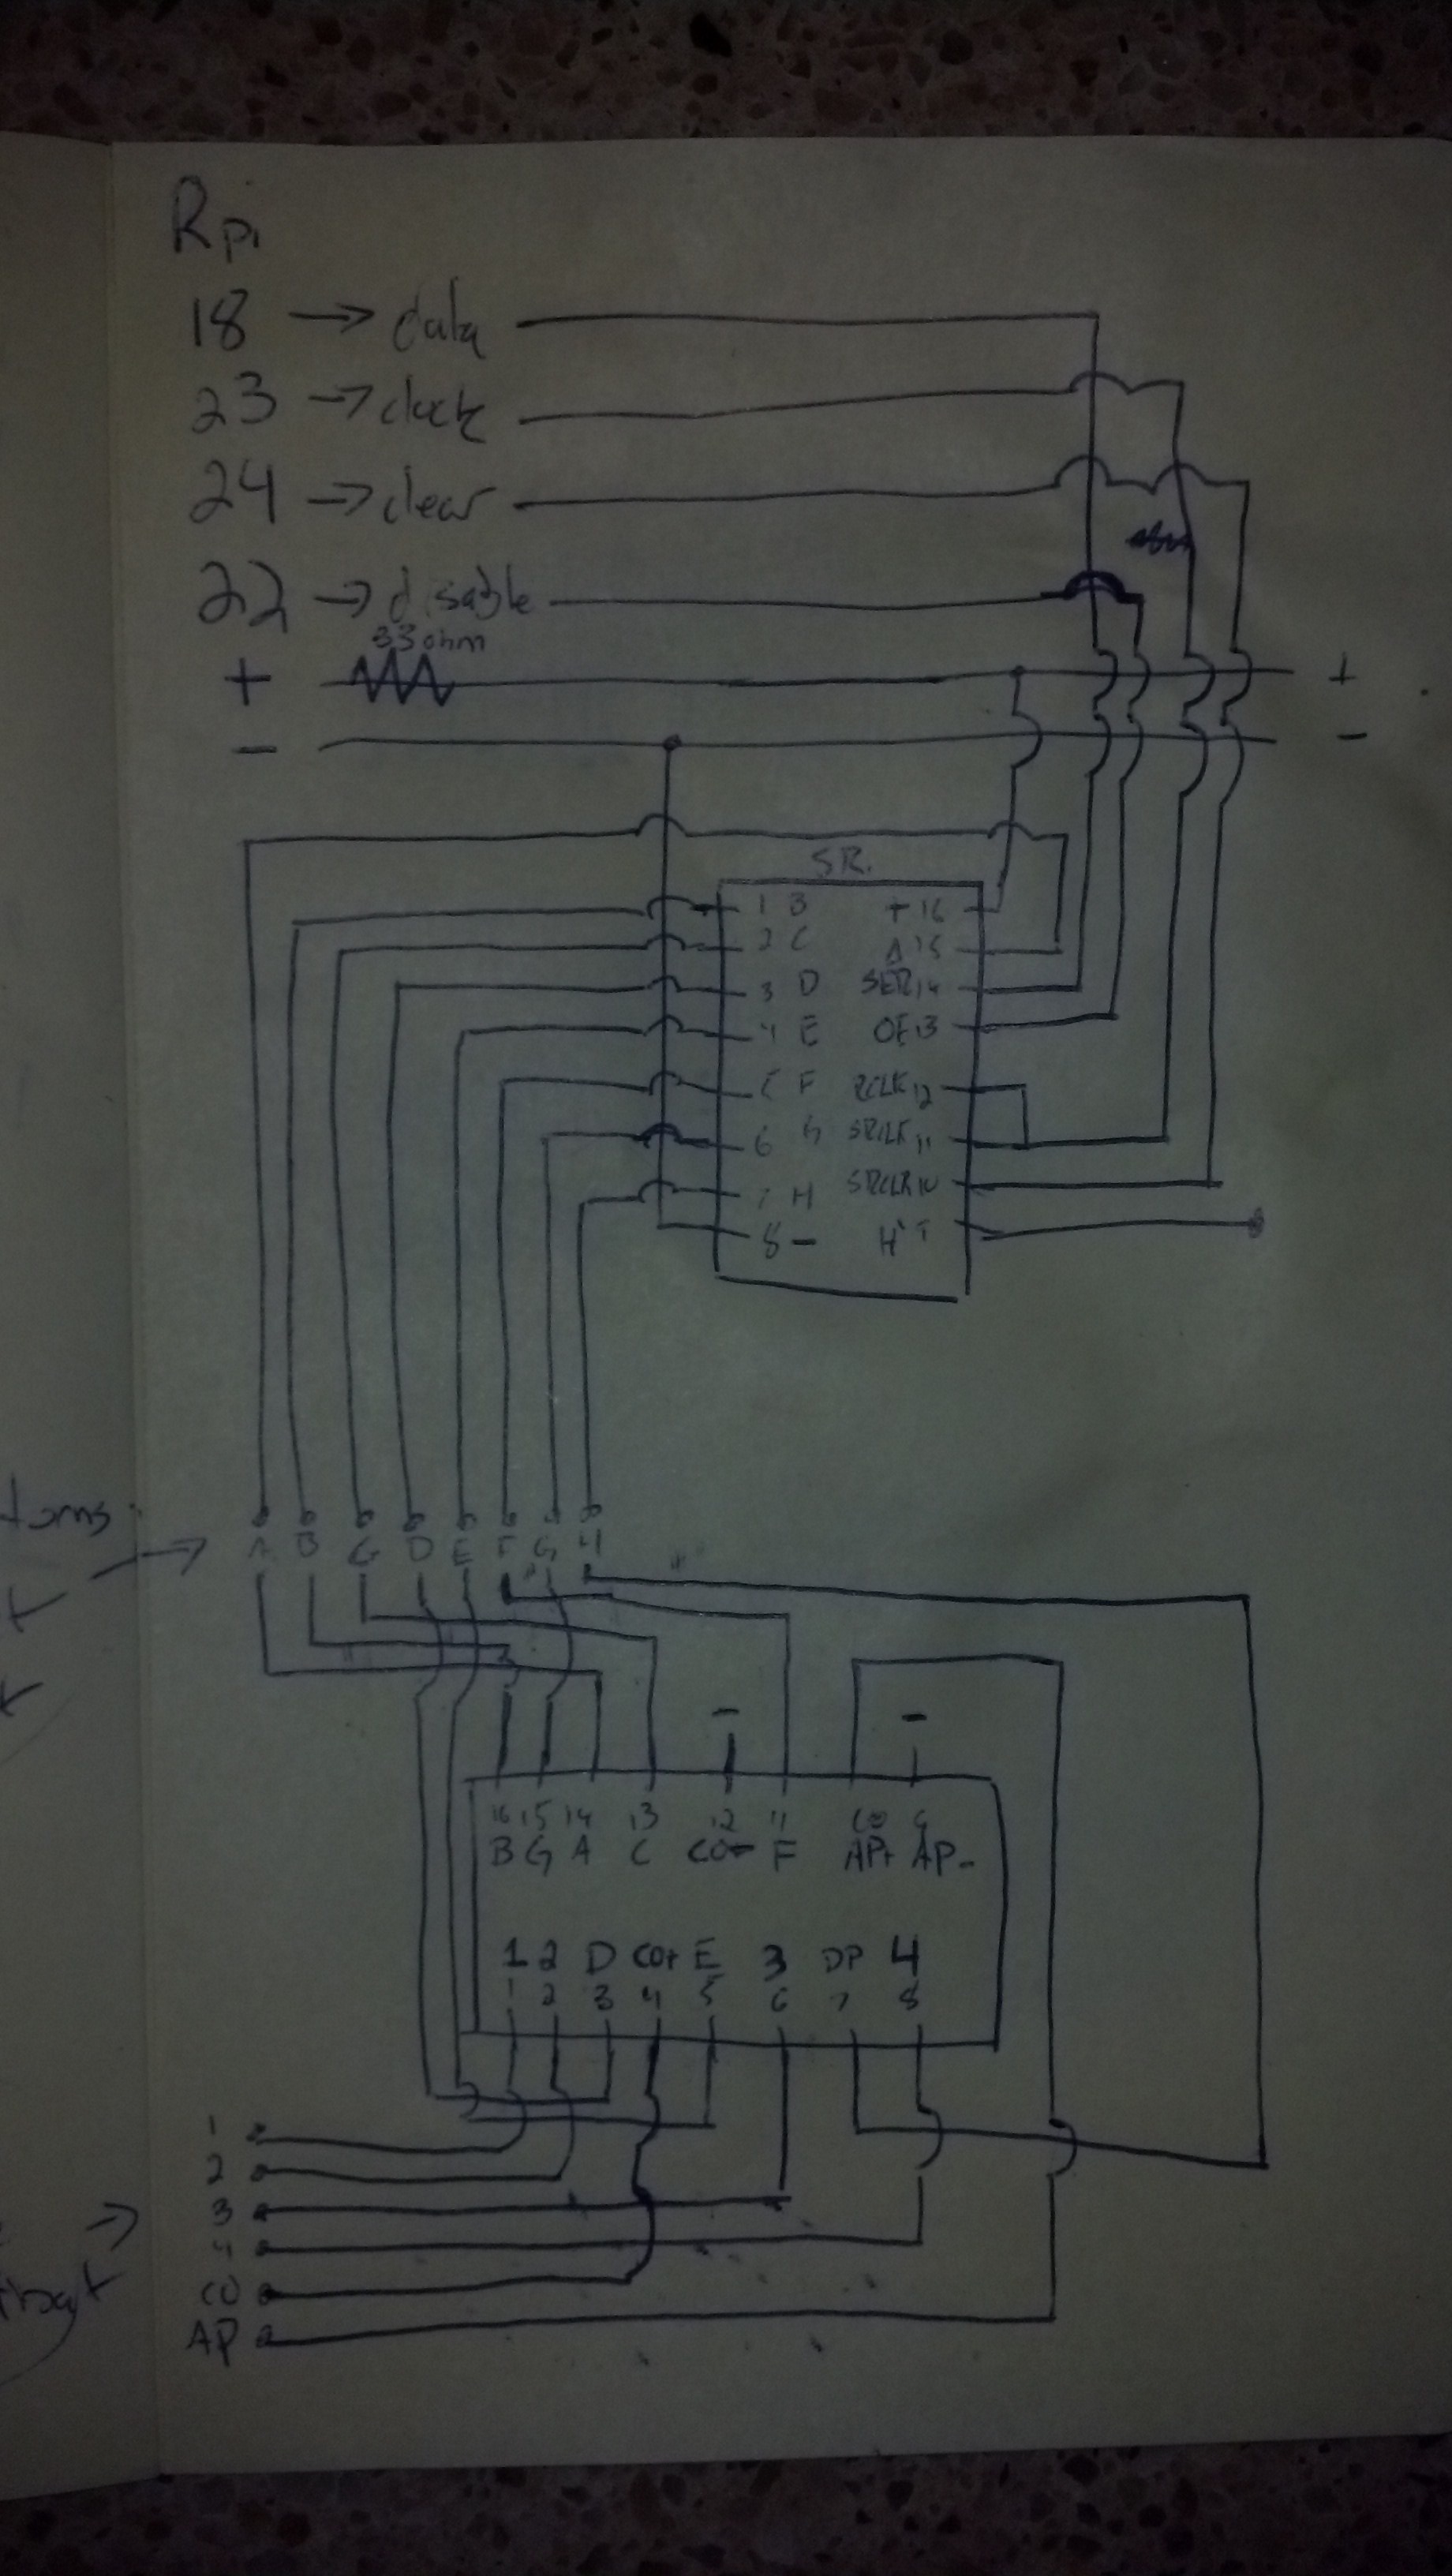 Rpi
18 → data
23 → clock
24 → clear
22 → disable
33 ohm
+ +
- -
SR.
1 B + 16
2 C A 15
3 D SER 14
4 E OE 13
5 F RCLK 12
6 G SRCLK 11
7 H SRCLR 10
8 - H'
→ A B C D E F G H
- -
16 15 14 13 12 11 10 9
B G A C CO- F AP+ AP-
1 2 D CO+ E 3 DP 4
1 2 3 4 5 6 7 8
1
2
→ 3
4
CO
AP